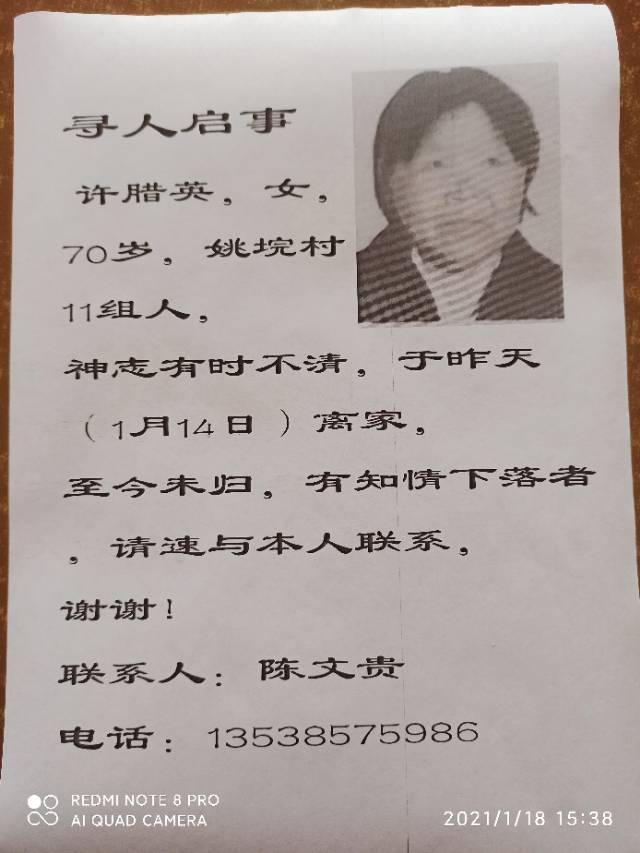 寻人启事
许腊英，女，
70岁，姚垸村
11组人，
神志有时不清，于昨天
（1月14日）离家，
至今未归，有知情下落者
，请速与本人联系，
谢谢！
联系人：陈文贵
电话：13538575986
REDMI NOTE 8 PRO
AI QUAD CAMERA
2021/1/18 15:38